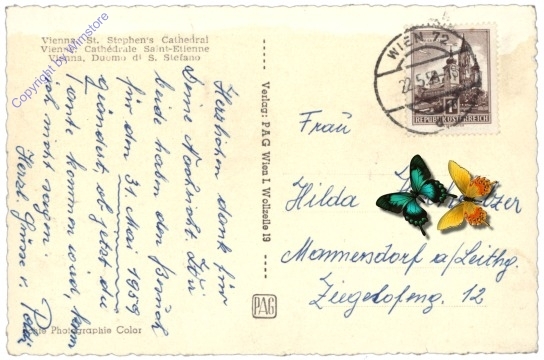 Vienna, St. Stephen's Cathedral
Vienne, Cathédrale Saint-Etienne
Vienna, Duomo di S. Stefano
Copyright by Winstore
Herzlichen dank für
Deine Nachricht. Wir
beide haben den Besuch
für den 31. Mai 1959
geändert, ob Tante
kommen wird, kann
ich nicht sagen.
Herzl. Grüsse v.
Echte Photographie Color
Verlag: PAG Wien I. Wollzeile 19
PAG
WIEN 72
22.5.59
REPUBLIK ÖSTERREICH
Frau
Hilda
Mannersdorf a/Leithg.
Ziegelofeng. 12